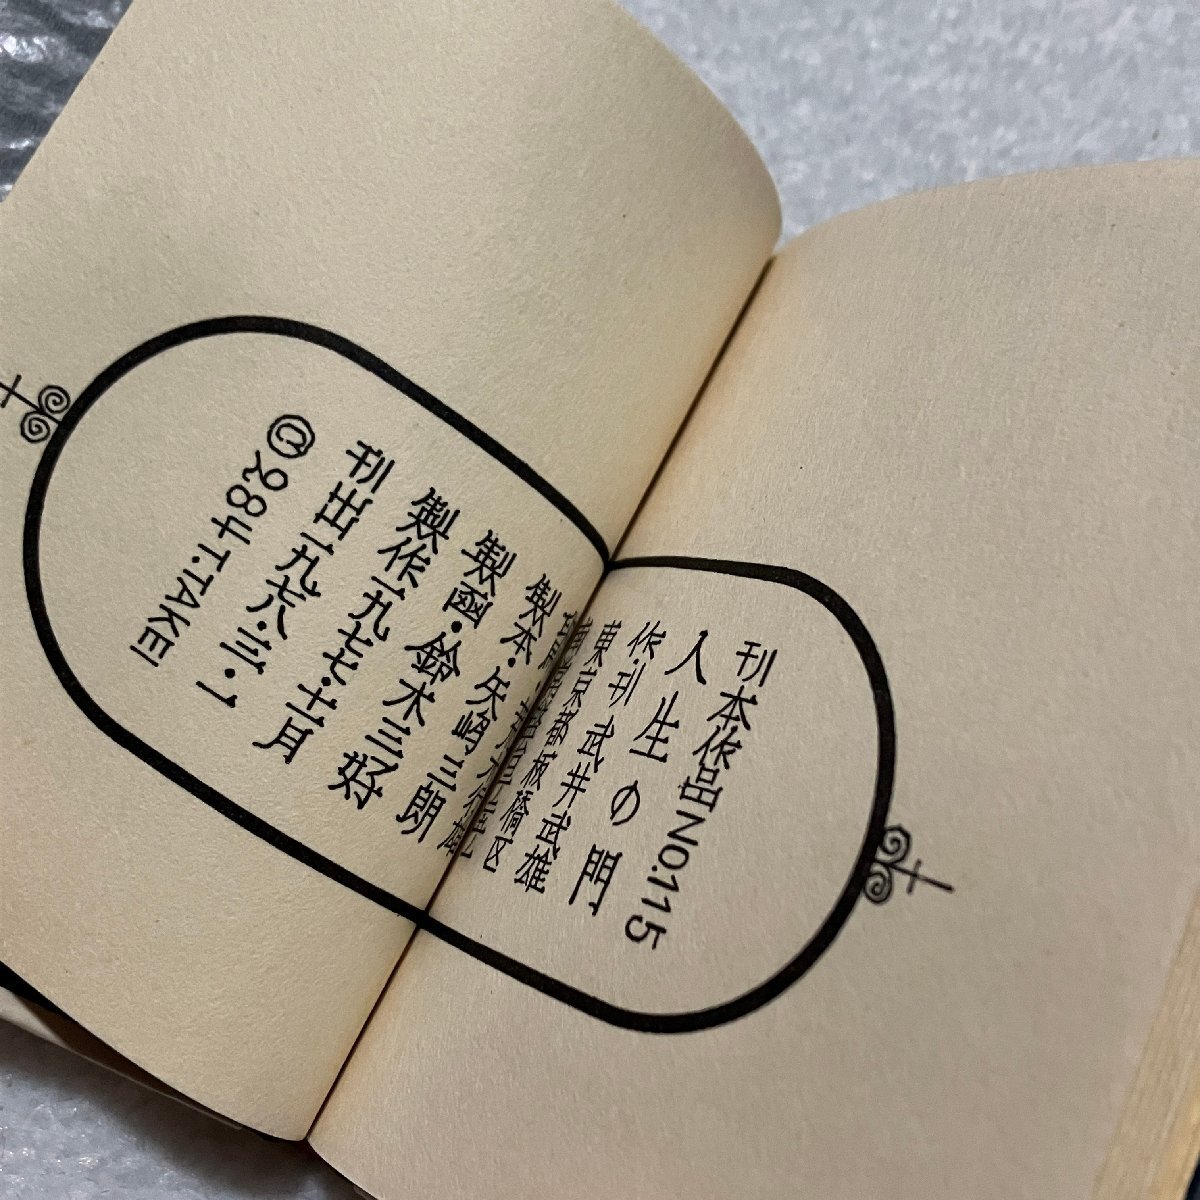 刊本作品NO.115
人生の門
作・刊 武井武雄
東京都板橋区
製本・矢嶋三朗
製函・鈴木三好
製作一九七七・十一月
刊出一九七八・三・一
©284T.TAKEI